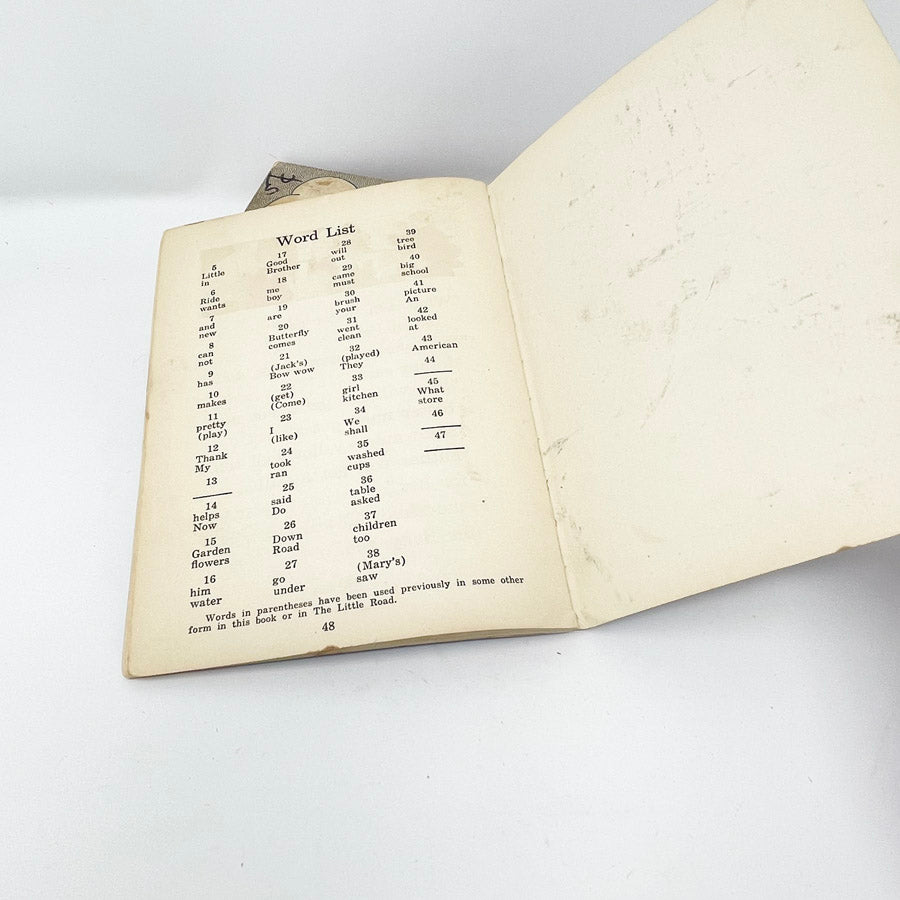 Word List
5
Little
in
6
Ride
wants
7
and
new
8
can
not
9
has
10
makes
11
pretty
(play)
12
Thank
My
13
14
helps
Now
15
Garden
flowers
16
him
water
17
Good
Brother
18
me
boy
19
are
20
Butterfly
comes
21
(Jack's)
Bow wow
22
(get)
(Come)
23
I
(like)
24
took
ran
25
said
Do
26
Down
Road
27
go
under
28
will
out
29
came
must
30
brush
your
31
went
clean
32
(played)
They
33
girl
kitchen
34
We
shall
35
washed
cups
36
table
asked
37
children
too
38
(Mary's)
saw
39
tree
bird
40
big
school
41
picture
An
42
looked
at
43
American
44
45
What
store
46
47
Words in parentheses have been used previously in some other
form in this book or in The Little Road.
48